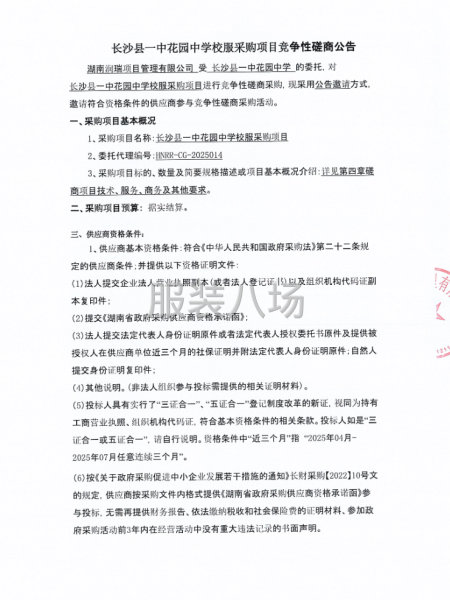 长沙县一中花园中学校服采购项目竞争性磋商公告
湖南润瑞项目管理有限公司 受 长沙县一中花园中学 的委托, 对
长沙县一中花园中学校服采购项目进行竞争性磋商采购, 现采用公告邀请方式,
邀请符合资格条件的供应商参与竞争性磋商采购活动。
一、采购项目基本概况
1、采购项目名称:长沙县一中花园中学校服采购项目
2、委托代理编号:HNRR-CG-2025014
3、采购项目标的、数量及简要规格描述或项目基本概况介绍:详见第四章磋
商项目技术、服务、商务及其他要求。
二、采购项目预算: 据实结算。
三、供应商资格条件:
1、供应商基本资格条件:符合《中华人民共和国政府采购法》第二十二条规
定的供应商条件;并提供以下资格证明文件:
(1)法人提交企业法人营业执照副本(或者法人登记证书)以及组织机构代码证副
本复印件;
(2)提交《湖南省政府采购供应商资格承诺函》;
(3)法人提交法定代表人身份证明原件或者法定代表人授权委托书原件及提供被
授权人在供应商单位近三个月的社保证明并附法定代表人身份证明原件;自然人
提交身份证明复印件;
(4)其他说明。(非法人组织参与投标需提供的相关证明材料)。
(5)投标人具有实行了“三证合一”、“五证合一”登记制度改革的新证, 视同为持有
工商营业执照、组织机构代码证, 符合基本资格条件的相关条款。投标人如是“三
证合一或五证合一”, 请自行说明。资格条件中“近三个月”指 “2025年04月-
2025年07月任意连续三个月”。
(6)按《关于政府采购促进中小企业发展若干措施的通知》长财采购【2022】10号文
的规定, 供应商按采购文件内格式提供《湖南省政府采购供应商资格承诺函》参
与投标, 无需再提供财务报告、依法缴纳税收和社会保险费的证明材料、参加政
府采购活动前3年内在经营活动中没有重大违法记录的书面声明。
服装八场